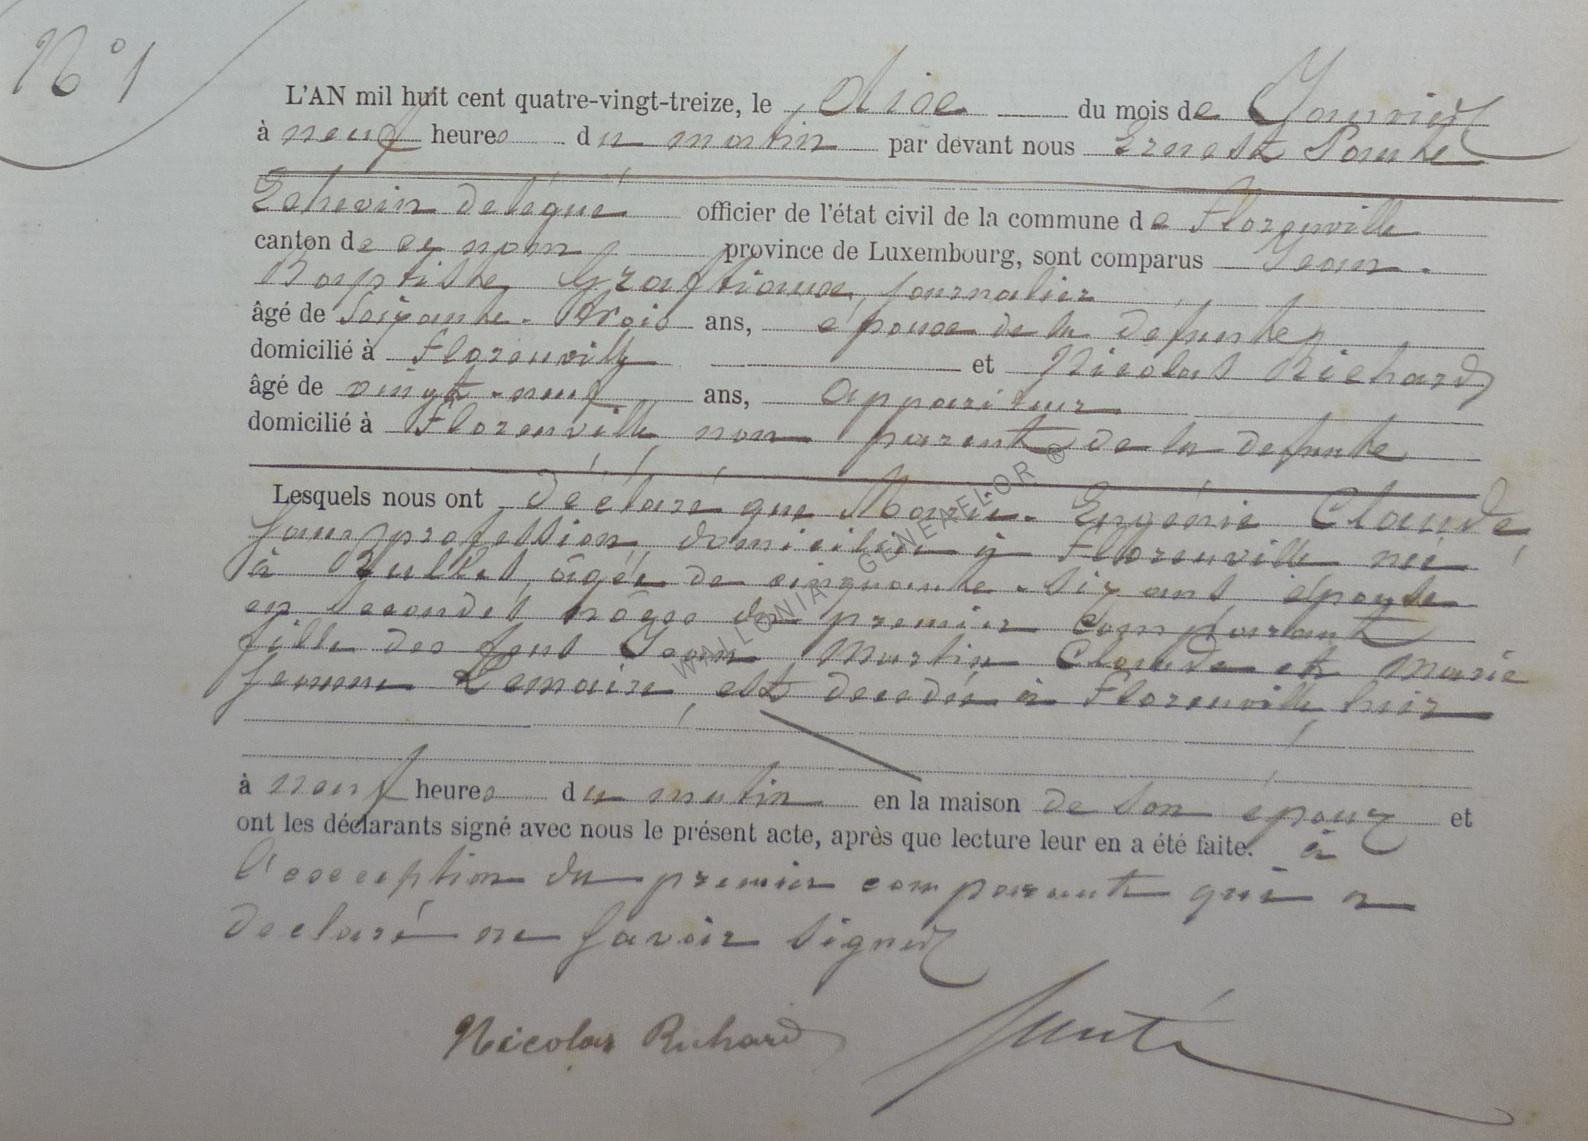 N° 1
L'AN mil huit cent quatre-vingt-treize, le dixe du mois de Janvier
à neuf heures du matin par devant nous Ernest Santé
Echevin délégué officier de l'état civil de la commune de Florenville
canton de ce nom province de Luxembourg, sont comparus Jean-
Baptiste journalier
âgé de Soixante-trois ans, epoux de la defunte
domicilié à Florenville et Nicolas Richard
âgé de vingt-neuf ans, appariteur
domicilié à Florenville non parent de la defunte
Lesquels nous ont déclaré que Marie-Eugénie Claude
sans profession domiciliée à Florenville née
à âgée de cinquante-six ans épouse
en secondes nôces du premier comparant
fille des feus Jean Martin Claude et Marie
Jeanne Lemaire est decedée à Florenville hier
à neuf heures du matin en la maison de son époux et
ont les déclarants signé avec nous le présent acte, après que lecture leur en a été faite. à
l'exception du premier comparant qui a
declaré ne savoir signer
Nicolas Richard Santé
WALLONIA GENEAELOR ®